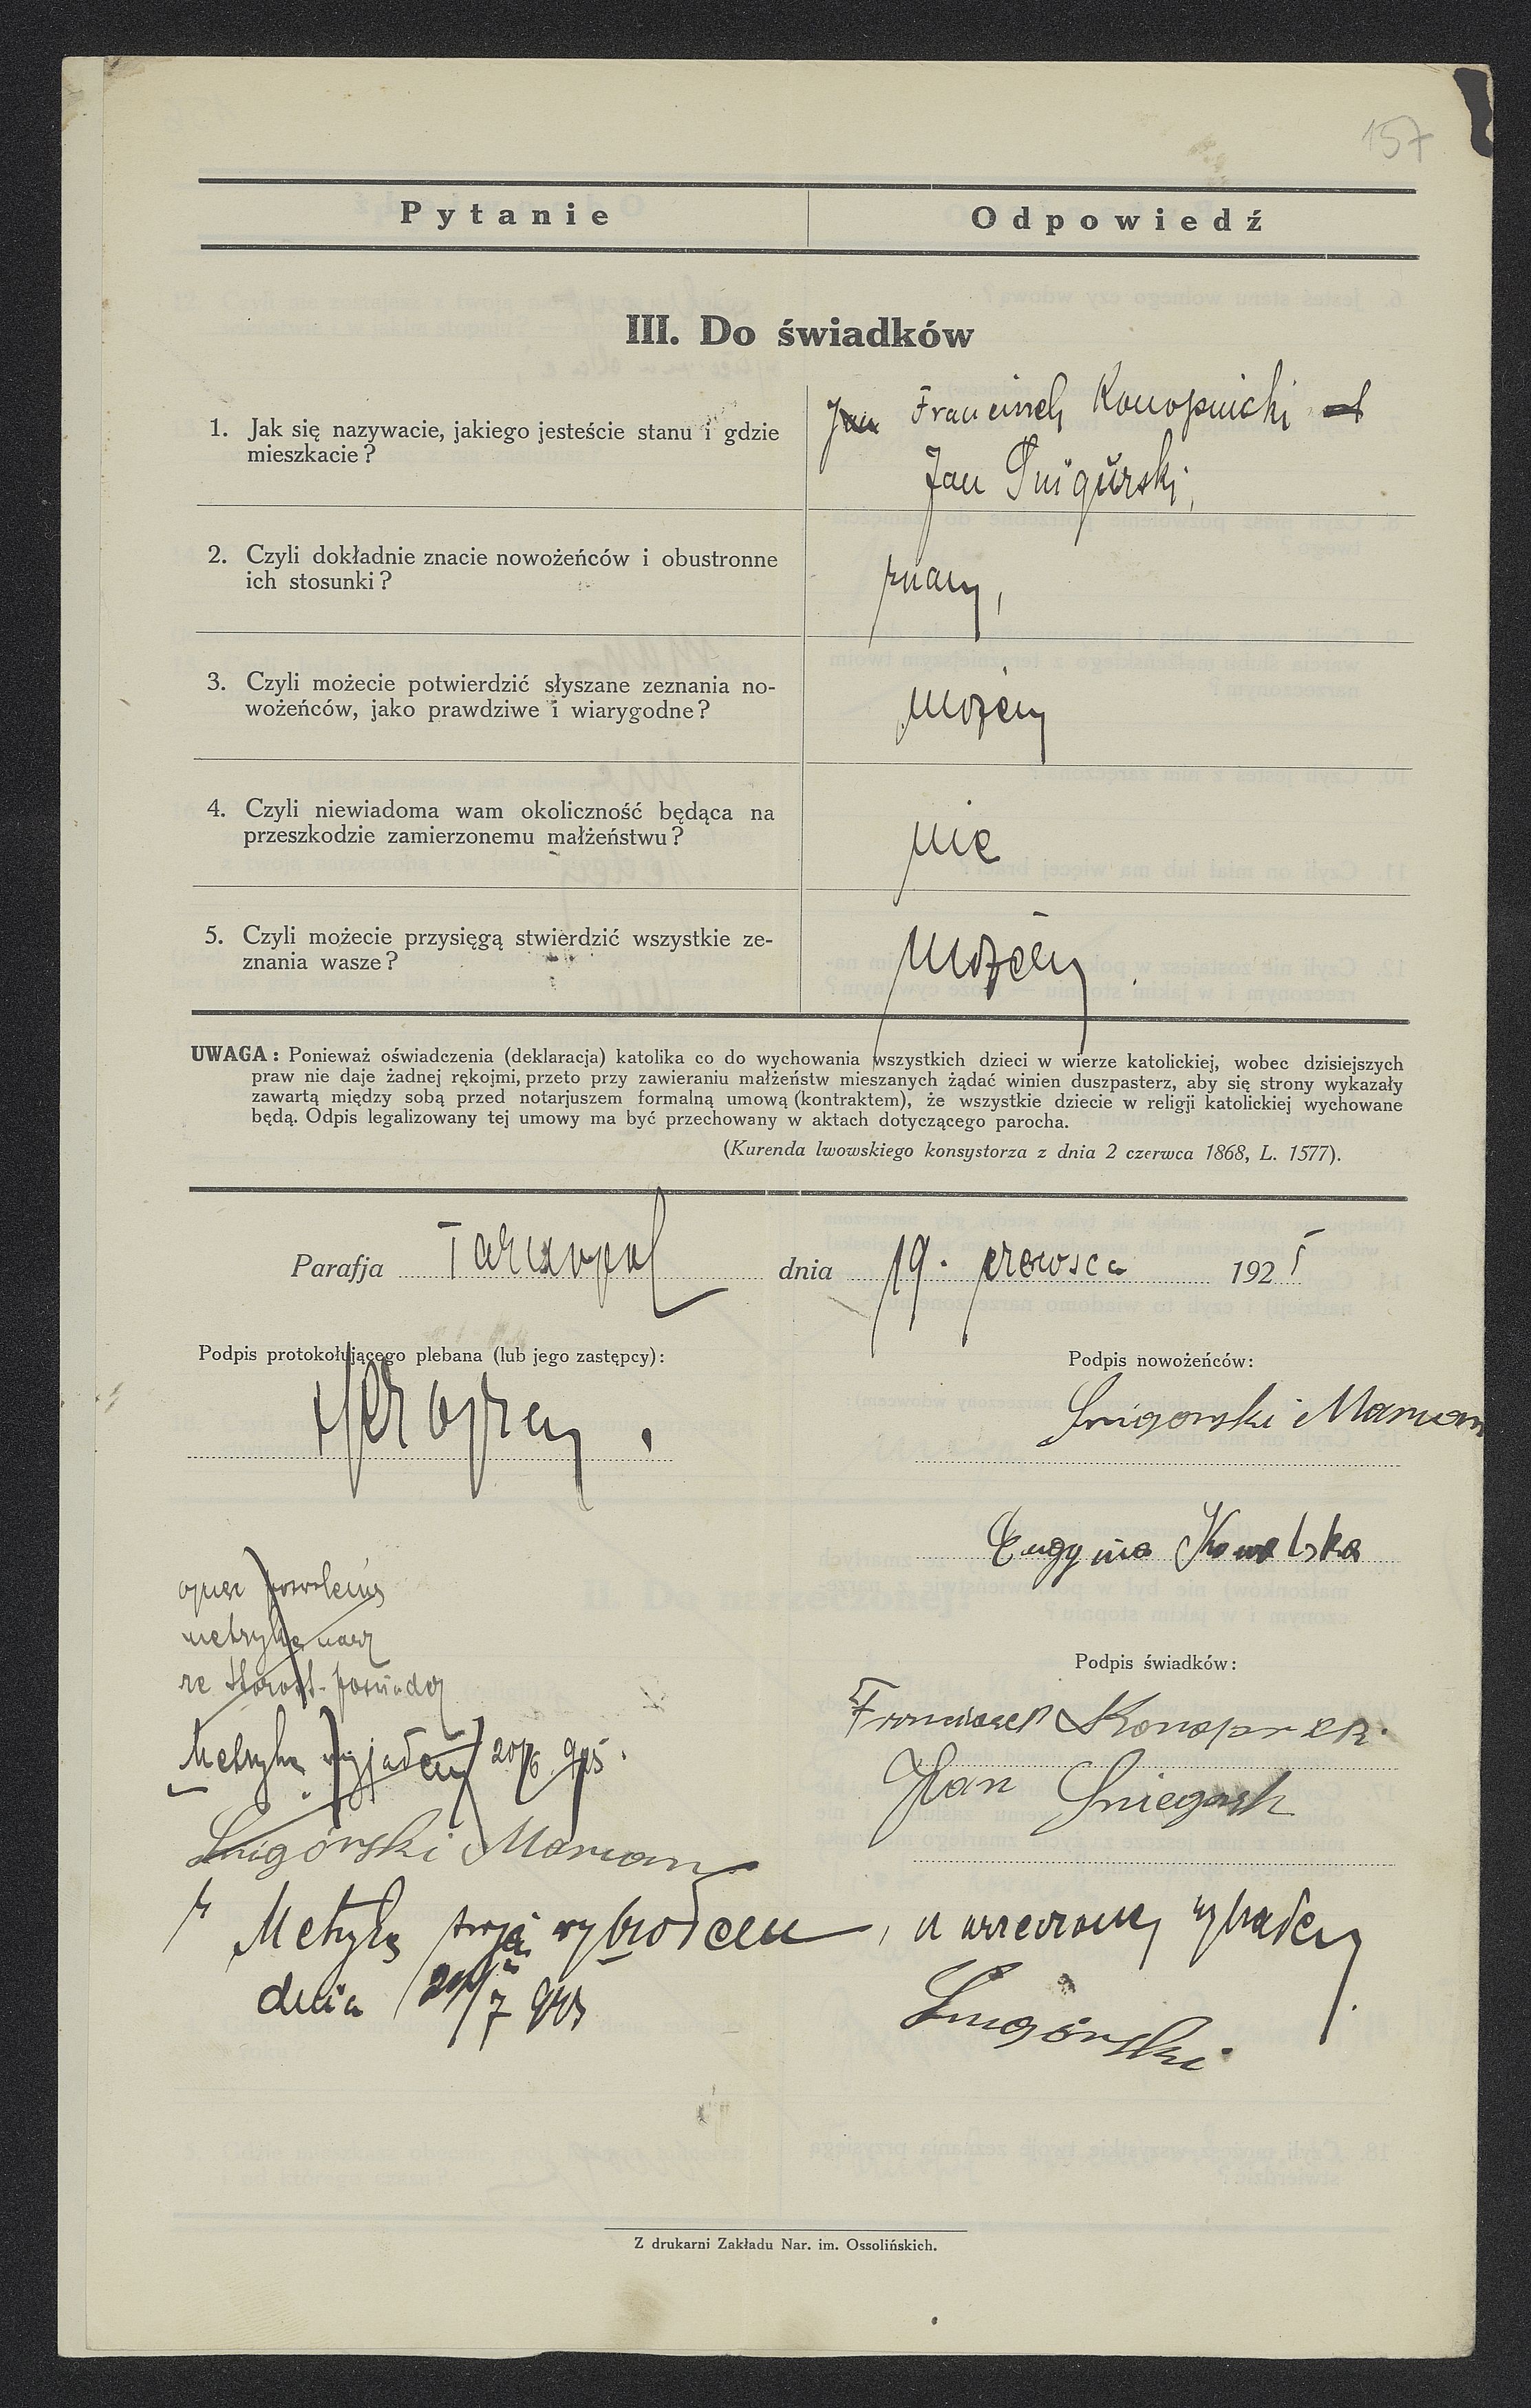 157
Pytanie
Odpowiedź
III. Do świadków
1. Jak się nazywacie, jakiego jesteście stanu i gdzie
mieszkacie?
Jan Franciszek Konopnicki
Jan Śnigurski,
2. Czyli dokładnie znacie nowożeńców i obustronne
ich stosunki?
znamy,
3. Czyli możecie potwierdzić słyszane zeznania no-
wożeńców, jako prawdziwe i wiarygodne?
możemy
4. Czyli niewiadoma wam okoliczność będąca na
przeszkodzie zamierzonemu małżeństwu?
nie
5. Czyli możecie przysięgą stwierdzić wszystkie ze-
znania wasze?
możemy
UWAGA: Ponieważ oświadczenia (deklaracja) katolika co do wychowania wszystkich dzieci w wierze katolickiej, wobec dzisiejszych
praw nie daje żadnej rękojmi, przeto przy zawieraniu małżeństw mieszanych żądać winien duszpasterz, aby się strony wykazały
zawartą między sobą przed notarjuszem formalną umową (kontraktem), że wszystkie dziecie w religji katolickiej wychowane
będą. Odpis legalizowany tej umowy ma być przechowany w aktach dotyczącego parocha.
(Kurenda lwowskiego konsystorza z dnia 2 czerwca 1868, L. 1577).
Parafja Tarnopol dnia 19. czerwca 1925
Podpis protokołującego plebana (lub jego zastępcy):
Podpis nowożeńców:
Snigorski Marian
Eugynia Kowalska
metrykę narz
Podpis świadków:
Franciszek
Jan
Metrykę wyjąłem 20/6 925.
Snigórski Marian
Metrykę swoją wybrałem, narzeczonej wybrałem
dnia 20/7 925
Snigórski
Z drukarni Zakładu Nar. im. Ossolińskich.